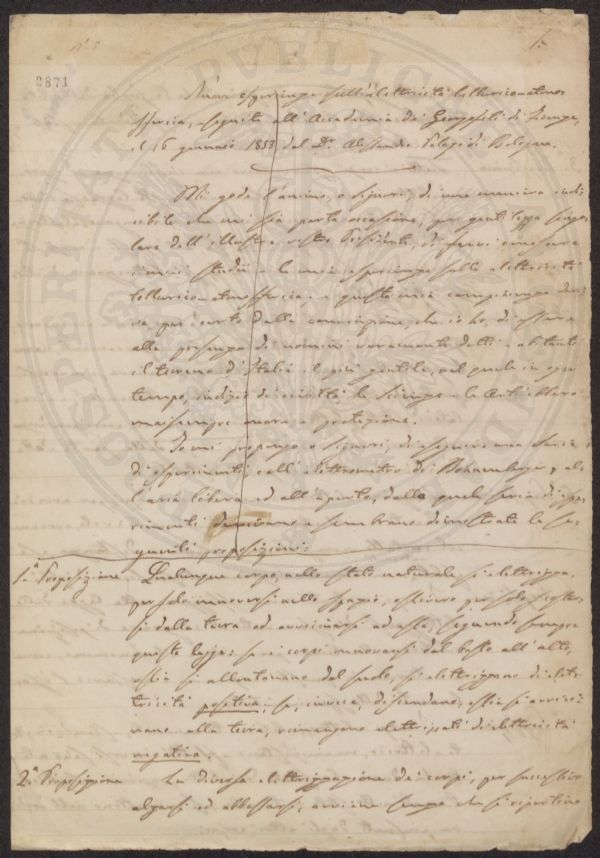 N. 5
1.
2871
Nuovi esperienze sull'elettricità tellurico-atmo-
sferica, eseguite all'Accademia dei Georgofili di Firenze,
il 16 gennaio 1853 dal Dr. Alessandro Palagi di Bologna.
Mi gode l'animo, o Signori, di una maniera indi-
cibile che mi sia porta occasione, per gentilezza singo-
lare dell'illustre vostro Presidente, di farvi conoscere
i miei studii e le mie esperienze sulla elettricità
tellurico-atmosferica: e questa mia
va per certo dalla convinzione, che io ho, di essere
alla presenza di uomini veramente dotti e abitanti
il terreno d'Italia il più gentile, nel quale in ogni
tempo, di civiltà le Scienze e le Arti ebbero
maisempre onore e protezione.
Io mi propongo o Signori, di eseguire una serie
di esperimenti coll'elettrometro di Bohnenberger, e al-
l'aria libera ed all'aperto, dalla quale serie di spe-
rimenti derivano e sembrano dimostrate le se-
guenti proposizioni:
1.a Proposizione Qualunque corpo, nello stato naturale si elettrizza,
per solo muoversi nello spazio, ossivero per solo scostar-
si dalla terra od avvicinarsi ad essa, seguendo sempre
questa legge: se i corpi muovonsi dal basso all'alto,
ossia si allontanano dal suolo, si elettrizzano di elet-
tricità positiva; se, invece, discendono, ossia si avvici-
nano alla terra, rimangono elettrizzati di elettricità
negativa.
2.a Proposizione La diversa elettrizzazione dei corpi, pel successivo
alzarsi ed abbassarsi, avviene sempre che si ripetino